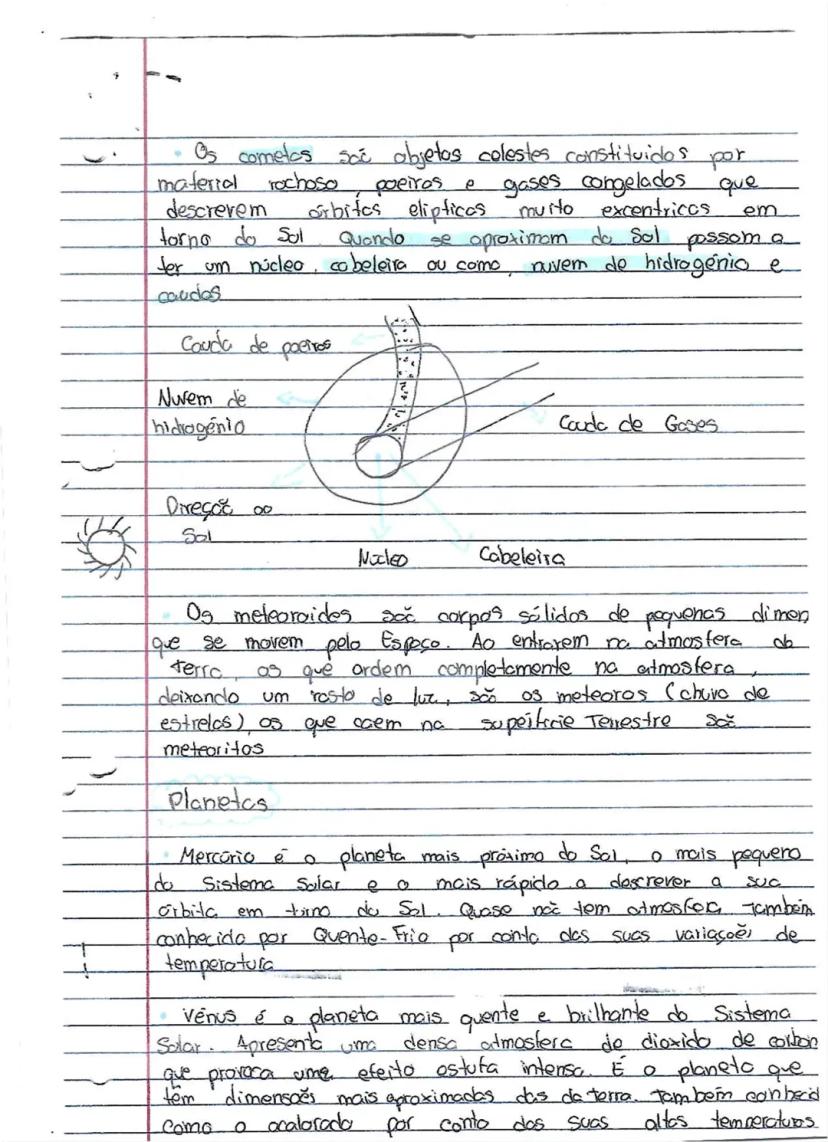 Os cometas são objetos celestes constituidos por
material rochoso, poeiras e gases congelados que
descrevem órbitas elipticas muito excentricas em
torno do Sol. Quando se aproximam do Sol passam a
ter um núcleo, cabeleira ou coma, nuvem de hidrogénio e
caudas
Cauda de poeiras
Nuvem de
hidrogénio
Cauda de Gases
Direção ao
Sol
Núcleo Cabeleira
Os meteoroides são corpos sólidos de pequenas dimen
que se movem pelo Espaço. Ao entrarem na atmosfera da
terra, os que ardem completamente na atmosfera,
deixando um rasto de luz, são os meteoros (chuva de
estrelas), os que caem na superfície Terrestre são
meteoritos
Planetas
Mercúrio é o planeta mais próximo do Sol, o mais pequeno
do Sistema Solar e o mais rápido a descrever a sua
órbita em torno do Sol. Quase não tem atmosfera. Também
conhecido por Quente-Frio por conta das suas variações de
temperatura
Vénus é o planeta mais quente e brilhante do Sistema
Solar. Apresenta uma densa atmosfera de dioxido de carbon
que provoca uma efeito estufa intensa. É o planeta que
têm dimensões mais aproximadas das da terra. Também conhecid
como o acalorado por conta das suas altas temperaturas